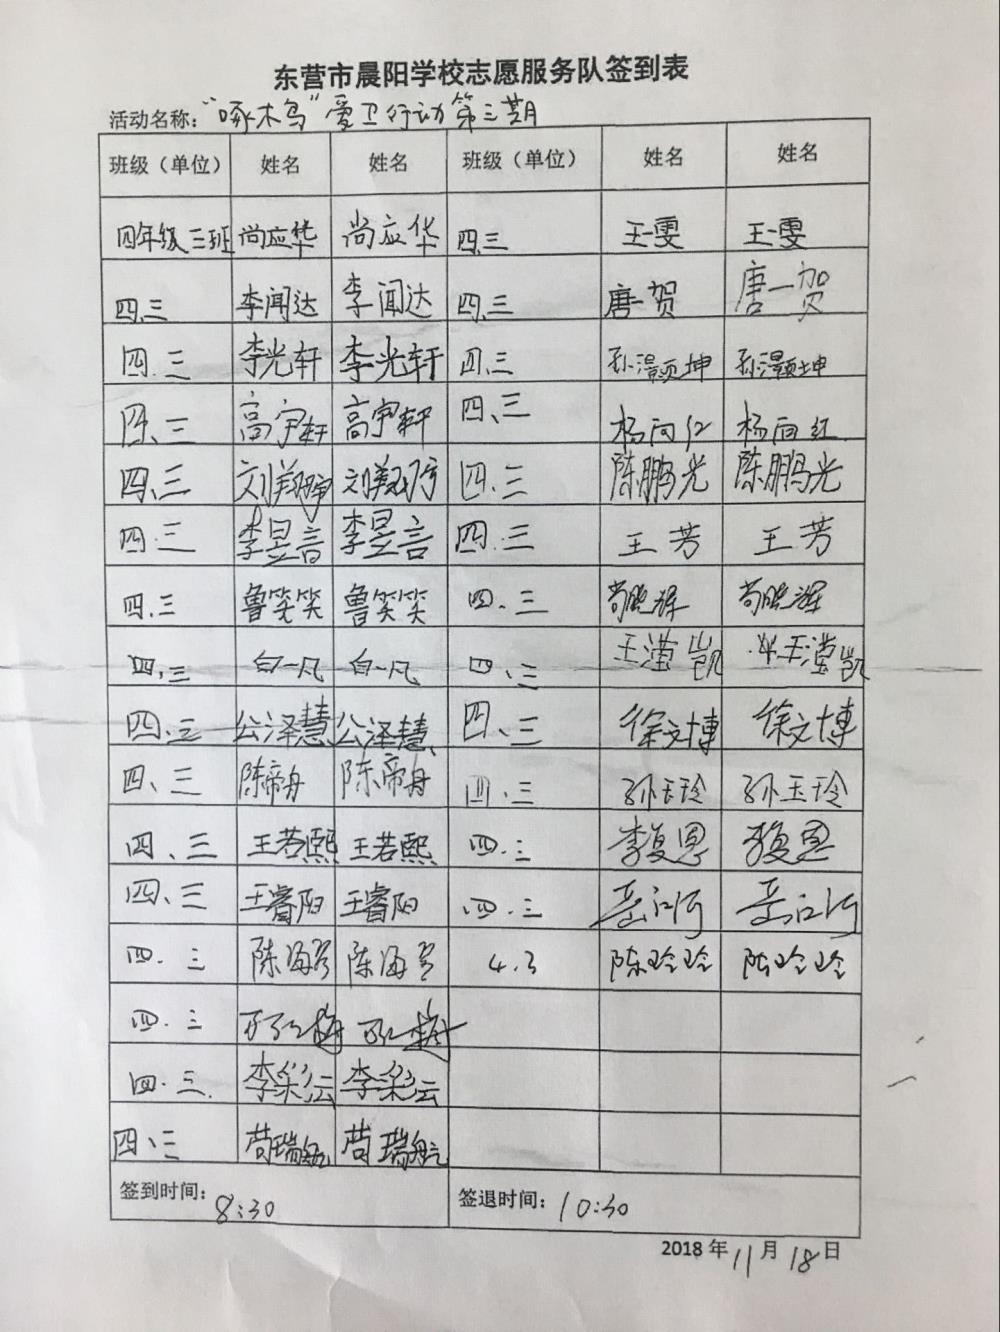 东营市晨阳学校志愿服务队签到表
活动名称："啄木鸟"爱卫行动第三期
班级（单位） 姓名 姓名 班级（单位） 姓名 姓名
四年级三班 尚应华 尚应华 四.三 王一雯 王一雯
四.三 李闻达 李闻达 四.三 唐一贺 唐一贺
四.三 李光轩 李光轩 四.三 孙灏坤 孙灏坤
四.三 高宇轩 高宇轩 四、三 杨向红 杨向红
四、三 刘翔宇 刘翔宇 四.三 陈鹏光 陈鹏光
四.三 李昱言 李昱言 四.三 王芳 王芳
四.三 鲁笑笑 鲁笑笑 四.三 苟晓辉 苟晓辉
四.三 白一凡 白一凡 四.三 王滢凯 王滢凯
四.三 公泽慧 公泽慧 四、三 徐文博 徐文博
四、三 陈帝舟 陈帝舟 四.三 孙玉玲 孙玉玲
四、三 王若熙 王若熙 四.三 李复恩 李复恩
四.三 王睿阳 王睿阳 四.三 岳江河 岳江河
四.三 陈海 陈海 4.3 陈玲玲 陈玲玲
四.三
四.三. 李梁沄 李梁沄
四、三 苟瑞航 苟瑞航
签到时间：8:30 签退时间：10:30
2018年11月18日